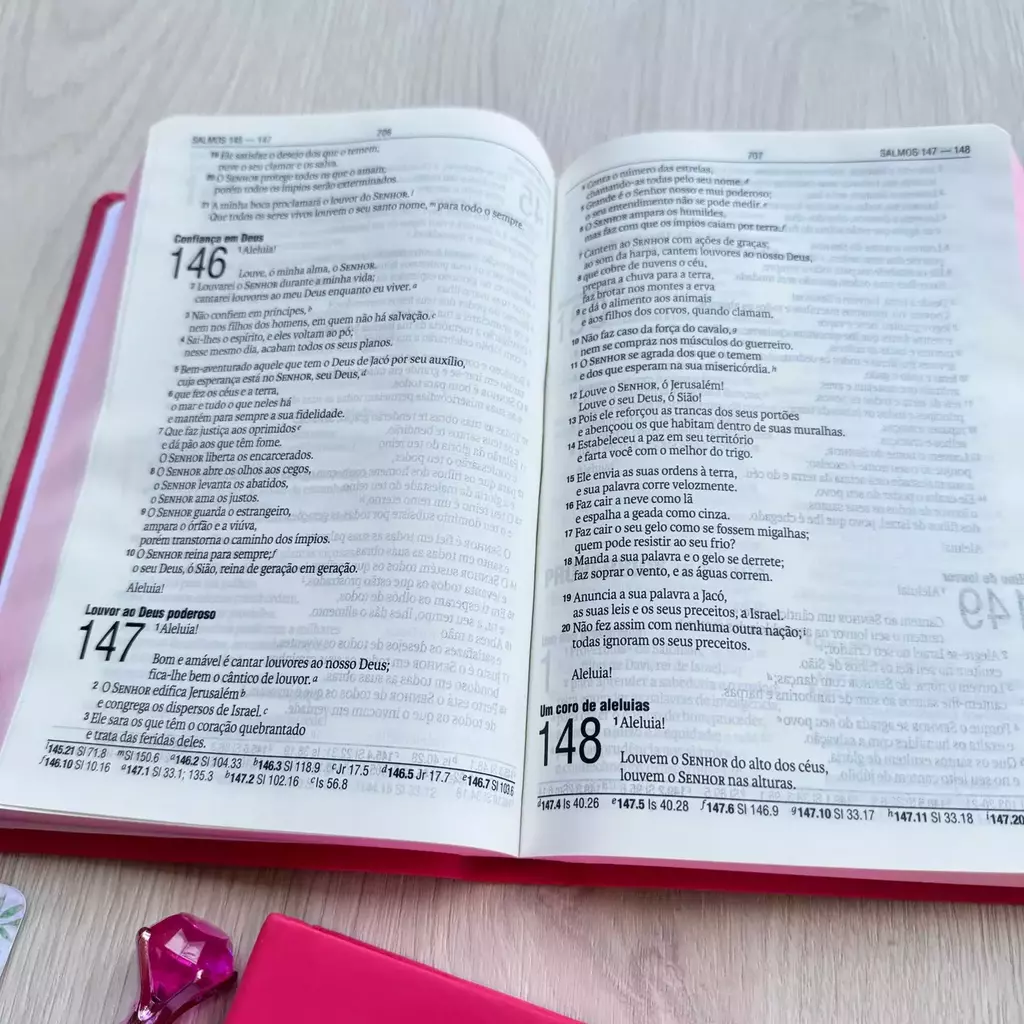 SALMOS 145 — 147
706
19 Ele satisfaz o desejo dos que o temem;
ouve o seu clamor e os salva.
20 O SENHOR protege todos os que o amam;
porém todos os ímpios serão exterminados.
21 A minha boca proclamará o louvor do SENHOR, l
Que todos os seres vivos louvem o seu santo nome, m para todo o sempre.
Confiança em Deus
146
1 Aleluia!
Louve, ó minha alma, o SENHOR.
2 Louvarei o SENHOR durante a minha vida;
cantarei louvores ao meu Deus enquanto eu viver. a
3 Não confiem em príncipes, b
nem nos filhos dos homens, em quem não há salvação. c
4 Sai-lhes o espírito, e eles voltam ao pó;
nesse mesmo dia, acabam todos os seus planos.
5 Bem-aventurado aquele que tem o Deus de Jacó por seu auxílio,
cuja esperança está no SENHOR, seu Deus, d
6 que fez os céus e a terra,
o mar e tudo o que neles há
e mantém para sempre a sua fidelidade.
7 Que faz justiça aos oprimidos e
e dá pão aos que têm fome.
O SENHOR liberta os encarcerados.
8 O SENHOR abre os olhos aos cegos,
o SENHOR levanta os abatidos,
o SENHOR ama os justos.
9 O SENHOR guarda o estrangeiro,
ampara o órfão e a viúva,
porém transtorna o caminho dos ímpios.
10 O SENHOR reina para sempre; f
o seu Deus, ó Sião, reina de geração em geração.
Aleluia!
Louvor ao Deus poderoso
147
1 Aleluia!
Bom e amável é cantar louvores ao nosso Deus;
fica-lhe bem o cântico de louvor. a
2 O SENHOR edifica Jerusalém b
e congrega os dispersos de Israel. c
3 Ele sara os que têm o coração quebrantado
e trata das feridas deles.
l 145.21 Sl 71.8 m Sl 150.6 a 146.2 Sl 104.33 b 146.3 Sl 118.9 c Jr 17.5 d 146.5 Jr 17.7 e 146.7 Sl 103.6
f 146.10 Sl 10.16 a 147.1 Sl 33.1; 135.3 b 147.2 Sl 102.16 c Is 56.8
707
SALMOS 147 — 148
4 Conta o número das estrelas,
chamando-as todas pelo seu nome. d
5 Grande é o Senhor nosso e mui poderoso;
o seu entendimento não se pode medir. e
6 O SENHOR ampara os humildes,
mas faz com que os ímpios caiam por terra. f
7 Cantem ao SENHOR com ações de graças;
ao som da harpa, cantem louvores ao nosso Deus,
8 que cobre de nuvens o céu,
prepara a chuva para a terra,
faz brotar nos montes a erva
9 e dá o alimento aos animais
e aos filhos dos corvos, quando clamam.
10 Não faz caso da força do cavalo, g
nem se compraz nos músculos do guerreiro.
11 O SENHOR se agrada dos que o temem
e dos que esperam na sua misericórdia. h
12 Louve o SENHOR, ó Jerusalém!
Louve o seu Deus, ó Sião!
13 Pois ele reforçou as trancas dos seus portões
e abençoou os que habitam dentro de suas muralhas.
14 Estabeleceu a paz em seu território
e farta você com o melhor do trigo.
15 Ele envia as suas ordens à terra,
e sua palavra corre velozmente.
16 Faz cair a neve como lã
e espalha a geada como cinza.
17 Faz cair o seu gelo como se fossem migalhas;
quem pode resistir ao seu frio?
18 Manda a sua palavra e o gelo se derrete;
faz soprar o vento, e as águas correm.
19 Anuncia a sua palavra a Jacó,
as suas leis e os seus preceitos, a Israel.
20 Não fez assim com nenhuma outra nação; i
todas ignoram os seus preceitos.
Aleluia!
Um coro de aleluias
148
1 Aleluia!
Louvem o SENHOR do alto dos céus,
louvem o SENHOR nas alturas.
d 147.4 Is 40.26 e 147.5 Is 40.28 f 147.6 Sl 146.9 g 147.10 Sl 33.17 h 147.11 Sl 33.18 i 147.20